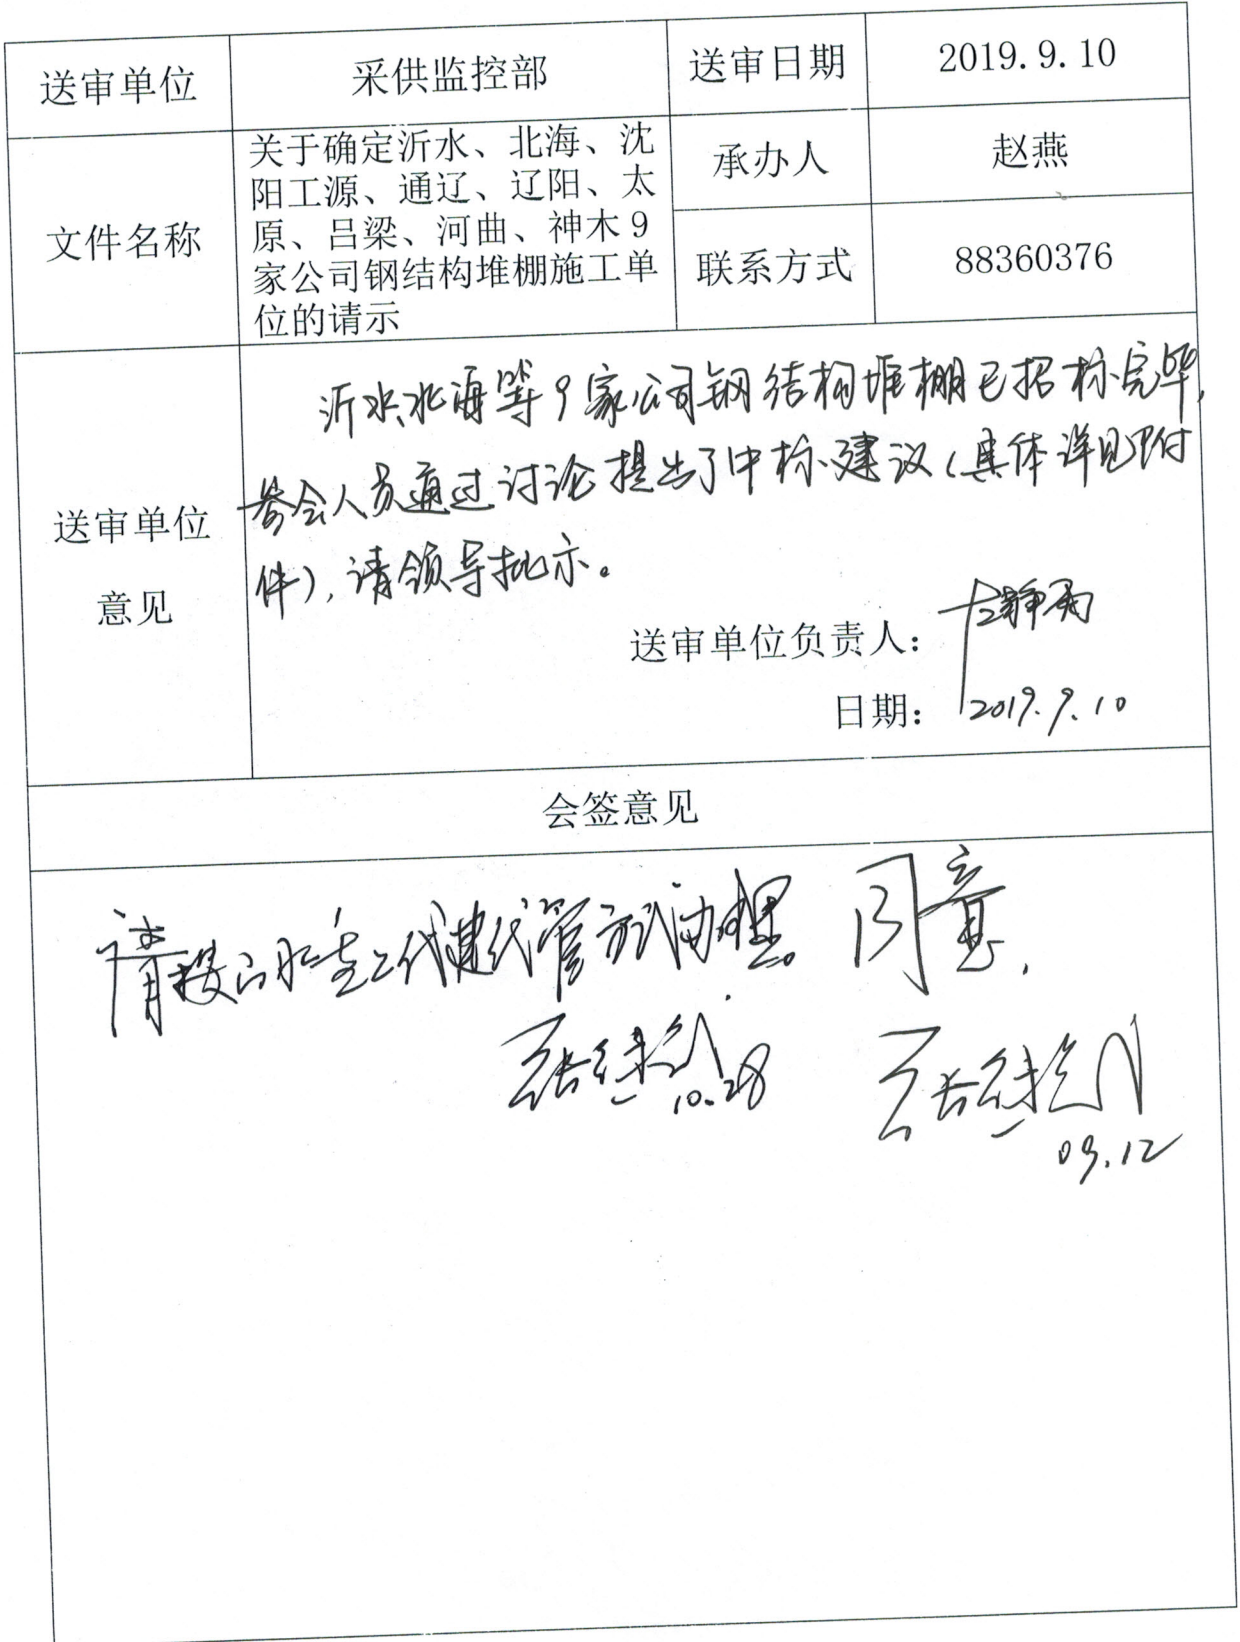 送审单位 采供监控部 送审日期 2019.9.10
文件名称
关于确定沂水、北海、沈
阳工源、通辽、辽阳、太
原、吕梁、河曲、神木9
家公司钢结构堆棚施工单
位的请示
承办人 赵燕
联系方式 88360376
送审单位
意见
沂水、北海等9家公司钢结构堆棚已招标完毕,
参会人员通过讨论提出了中标建议(具体详见附
件),请领导批示。
送审单位负责人:
日期: 2019.9.10
会签意见
请按山水重工代建代管方式办理。
同意.
10.28
09.12